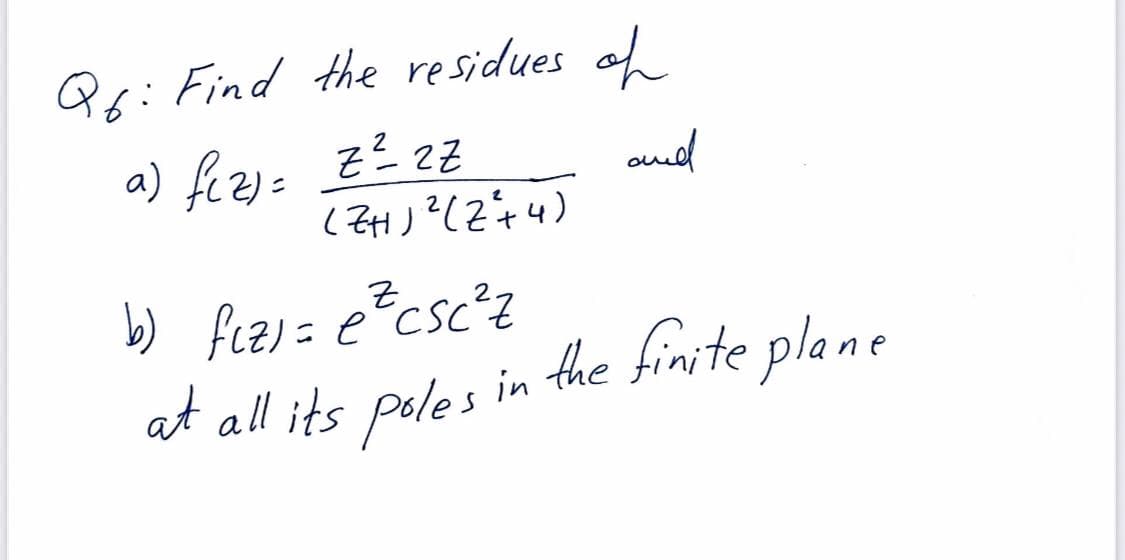 Q6: Find the residues of
a) f(z) = z² - 2z / (z+1)²(z²+4) and
b) f(z) = e^z csc²z
at all its poles in the finite plane